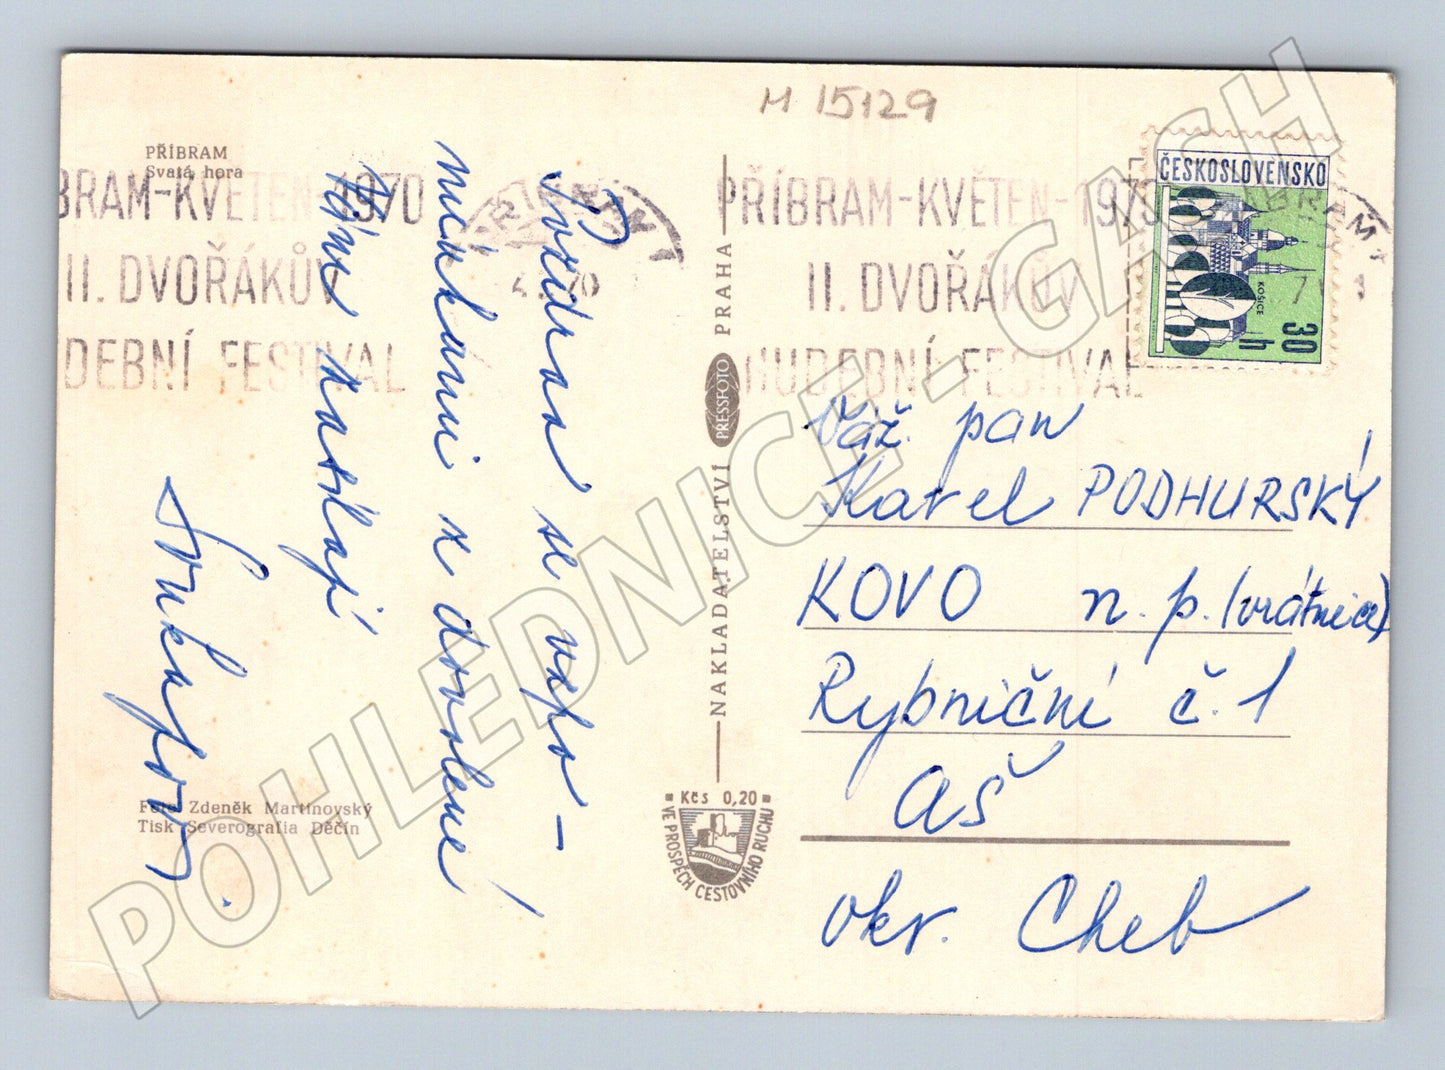 M 15129
PŘÍBRAM
Svatá hora
BRAM-KVĚTEN-1970
II. DVOŘÁKŮV
DEBNÍ FESTIVAL
PŘÍBRAM 1
PŘÍBRAM-KVĚTEN-1970
II. DVOŘÁKŮV
HUDEBNÍ FESTIVAL
ČESKOSLOVENSKO
KOŠICE
30 h
Pozdrav se vzpo-
mínkami z dovolené
Vám zasílají
Foto Zdeněk Martinovský
Tisk Severografia Děčín
NAKLADATELSTVÍ PRESSFOTO PRAHA
Kčs 0,20
VE PROSPĚCH CESTOVNÍHO RUCHU
Váž. pan
Karel PODHURSKÝ
KOVO n. p. (vrátnice)
Rybniční č. 1
aš
okr. Cheb
POHLEDNICE - GASH